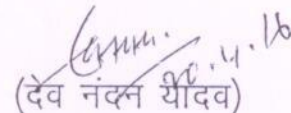 20.4.16
(देव नंदन यादव)